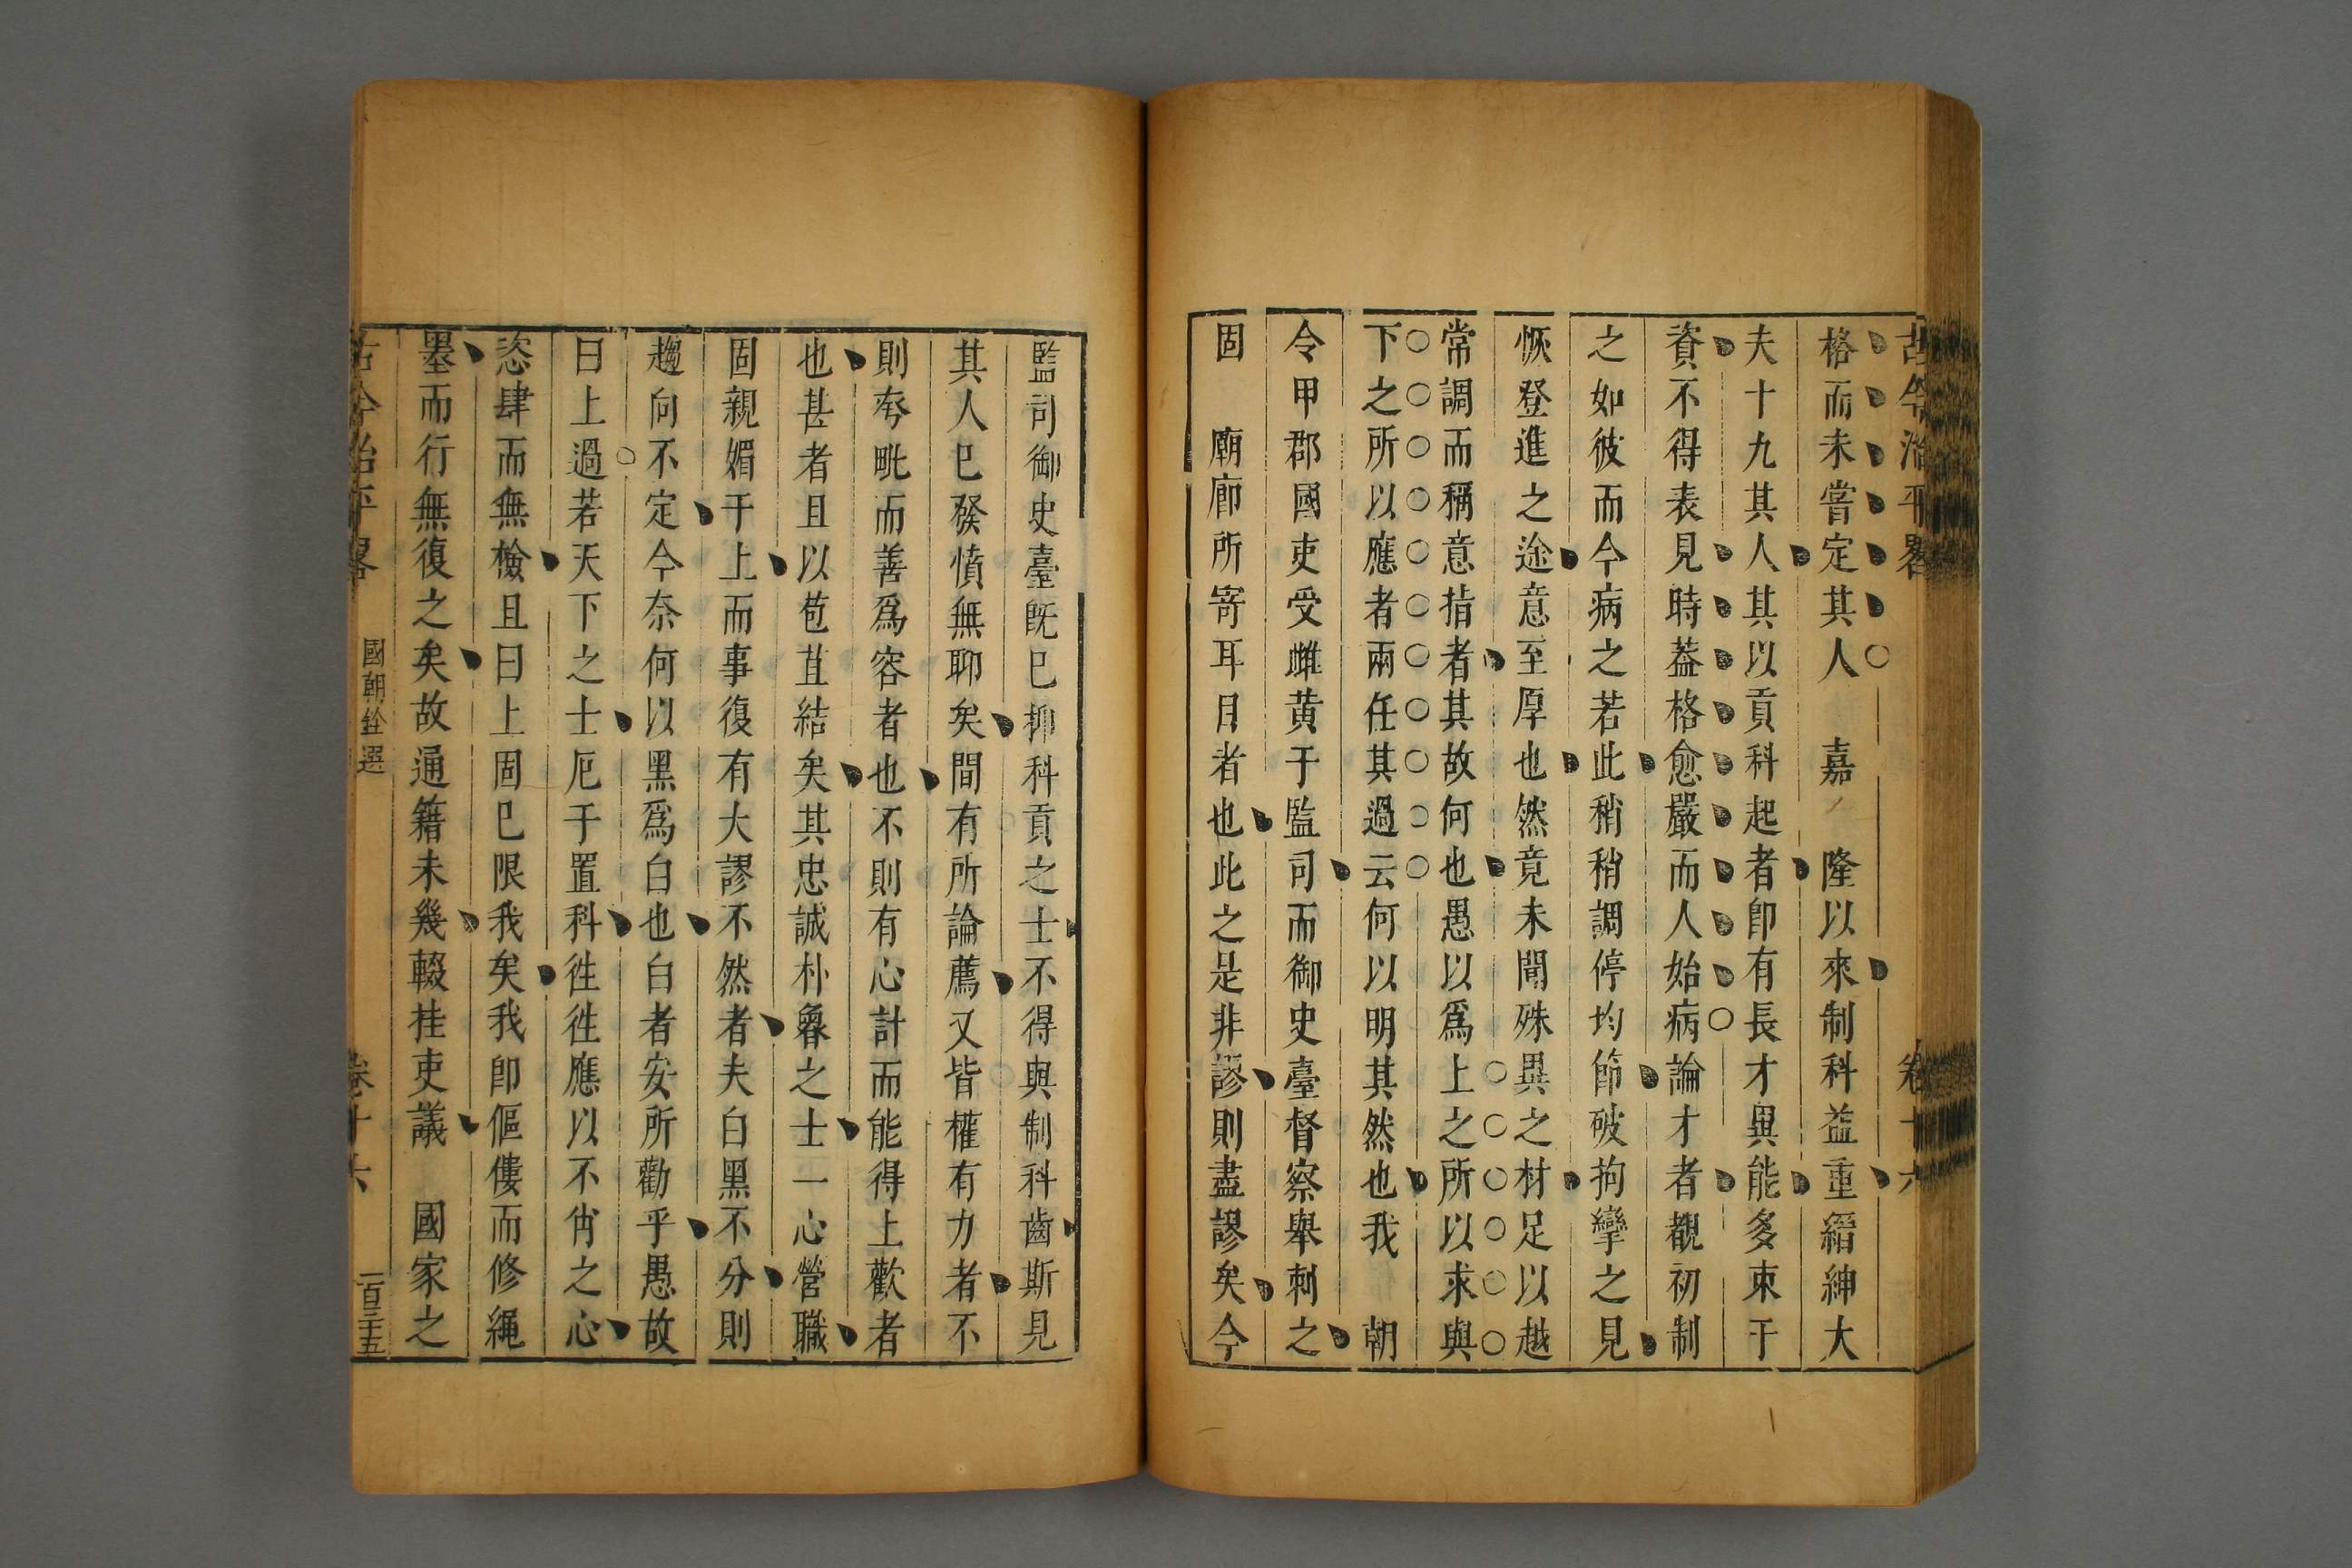 古今治平畧 卷十六
格而未嘗定其人 嘉 隆以來制科益重縉紳大
夫十九其人其以貢科起者卽有長才異能多束于
資不得表見時葢格愈嚴而人始病論才者覩初制
之如彼而今病之若此稍稍調停均節破拘攣之見
恢登進之途意至厚也然竟未聞殊異之材足以越
常調而稱意指者其故何也愚以爲上之所以求與
下之所以應者兩任其過云何以明其然也我 朝
令甲郡國吏受雌黄于監司而御史臺督察舉刺之
固 廟廊所寄耳目者也此之是非謬則盡謬矣今
監司御史臺旣已抑科貢之士不得與制科齒斯見
其人已發憤無聊矣間有所論薦又皆權有力者不
則夸毗而善爲容者也不則有心計而能得上歡者
也甚者且以苞苴結矣其忠誠朴魯之士一心營職
固親媚于上而事復有大謬不然者夫白黑不分則
趨向不定今奈何以黑爲白也白者安所勸乎愚故
曰上過若天下之士厄于置科徃徃應以不肖之心
恣肆而無檢且曰上固已限我矣我卽傴僂而修繩
墨而行無復之矣故通籍未幾輟挂吏議 國家之
古今治平畧 國朝銓選 卷十六 一百三十五